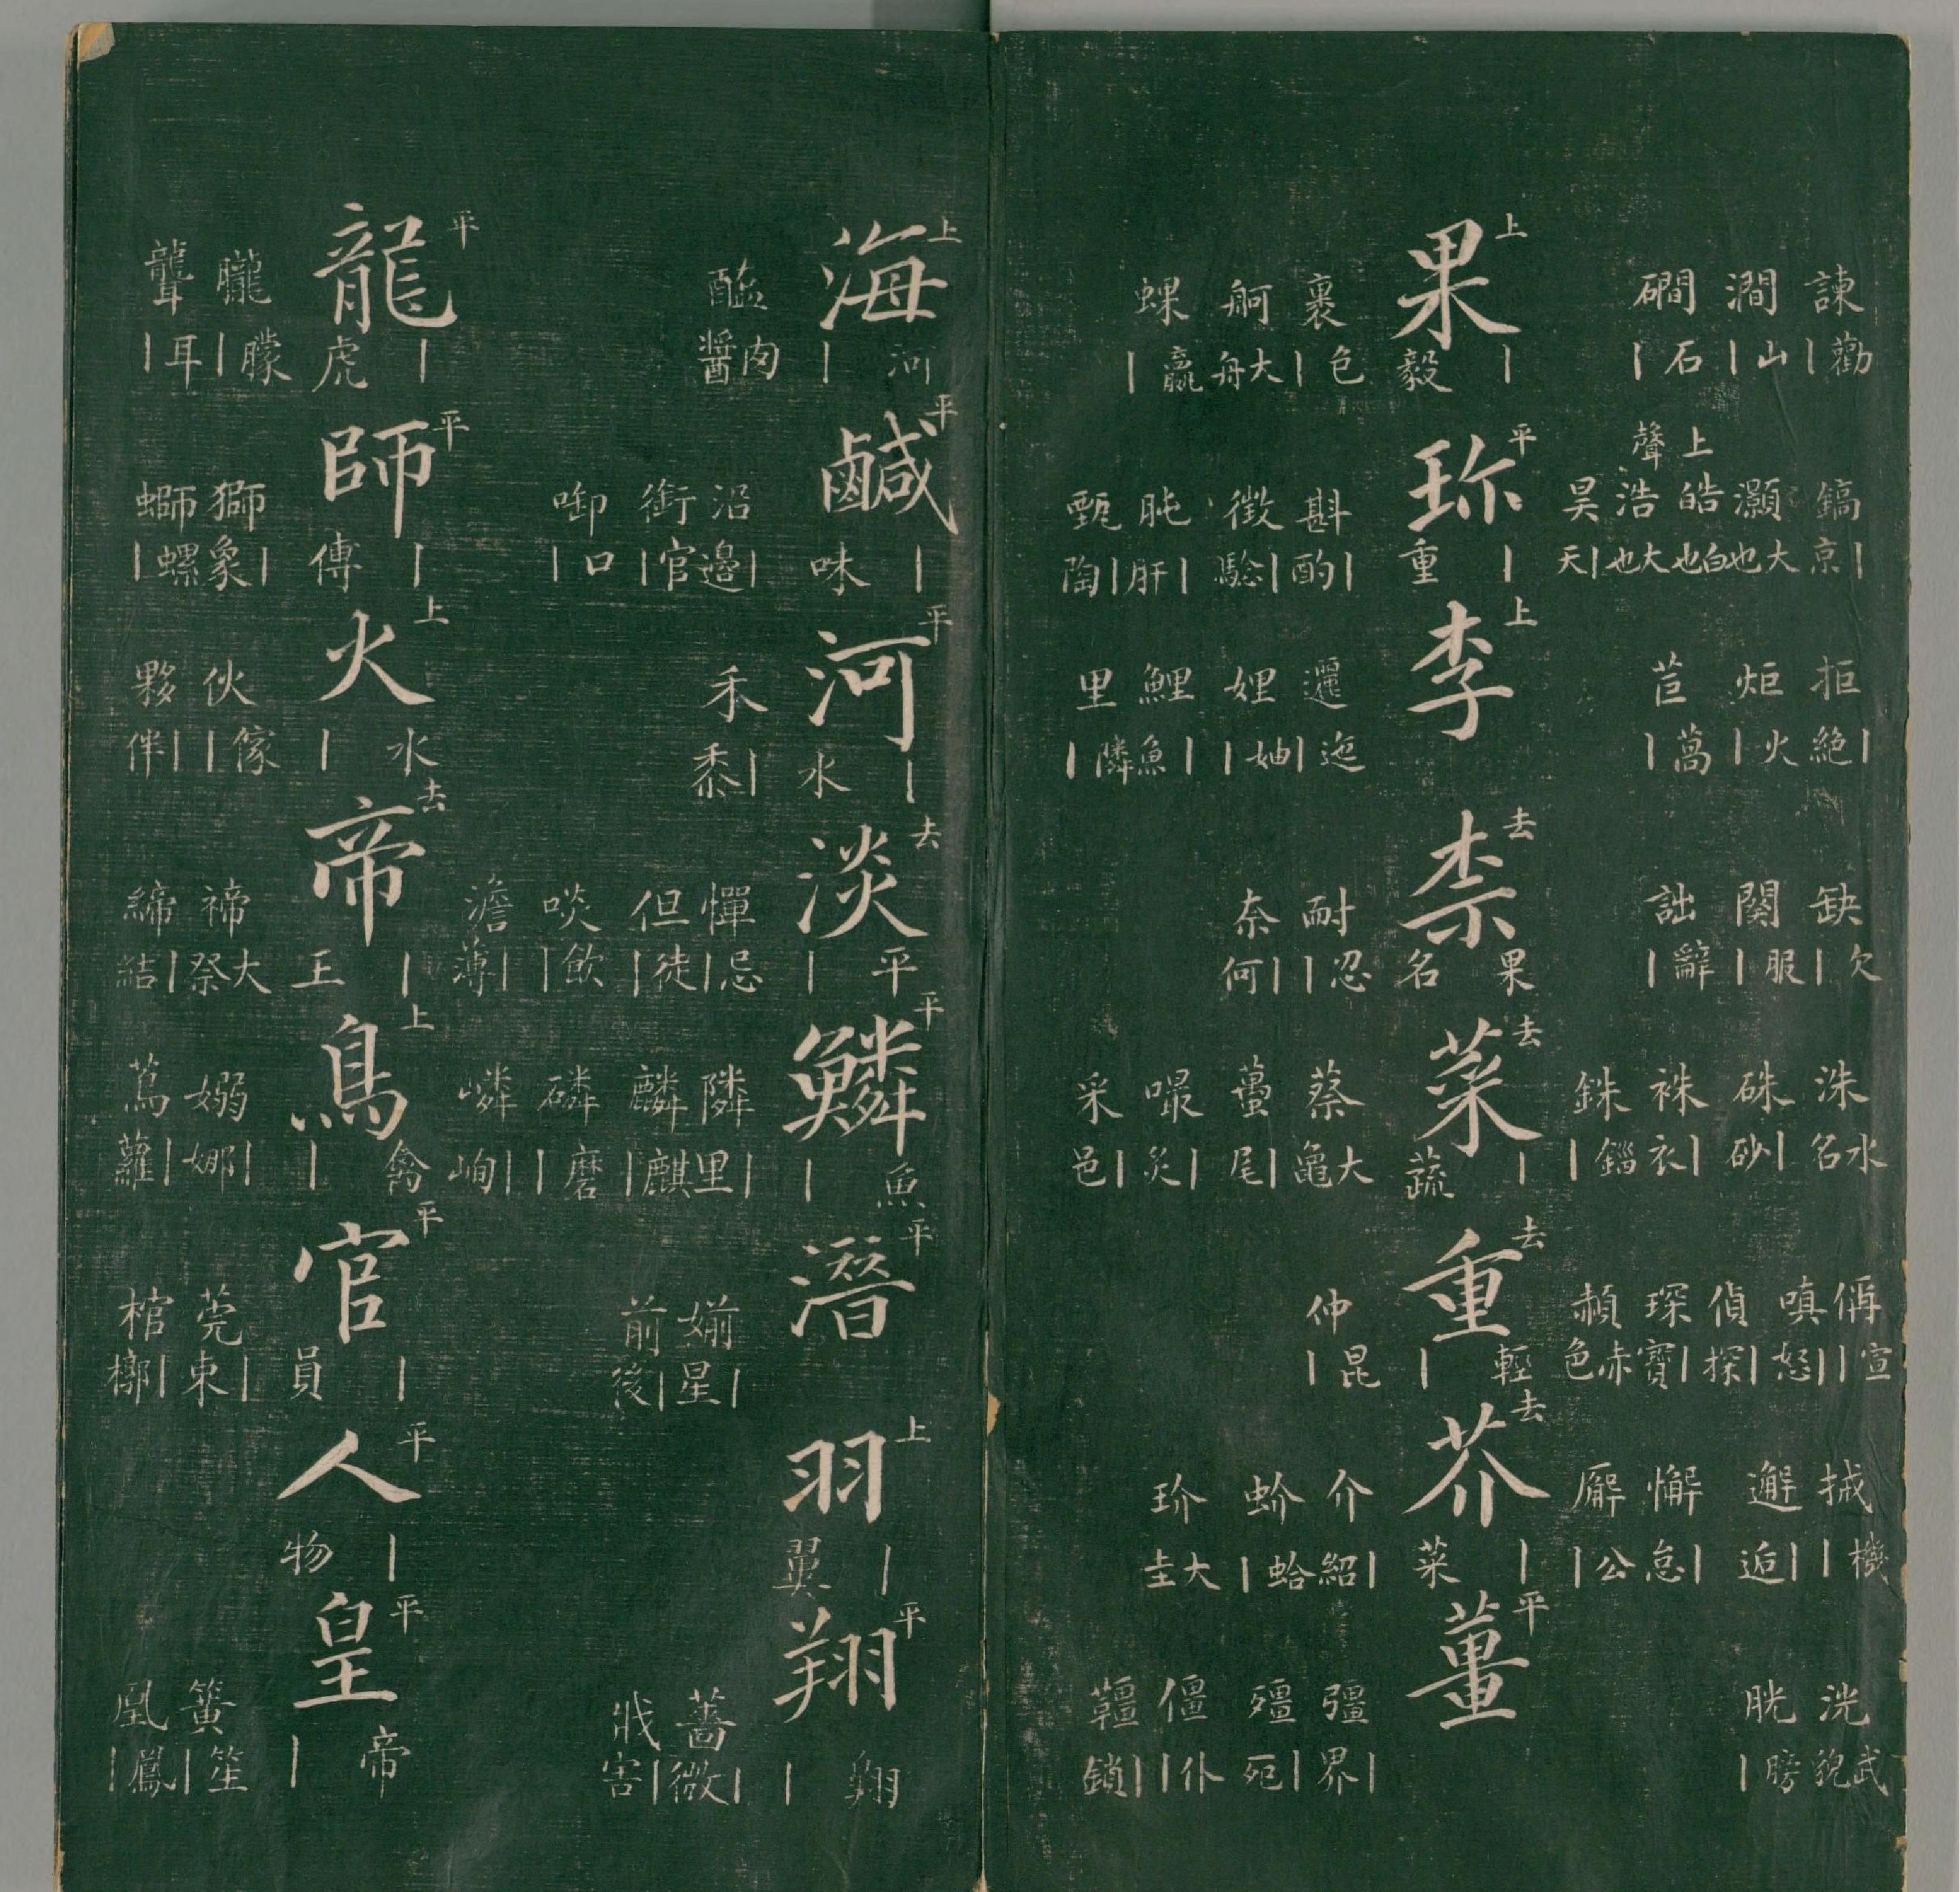 諫 勸｜ 鎬 ｜京 拒 ｜絕 缺 欠｜ 洙 水名 偁 宣｜ 械 機｜ 洸 武貌
澗 山｜ 上聲 灝 大也 炬 火｜ 闋 服｜ 硃 ｜砂 嗔 ｜怒 邂 ｜逅 胱 膀｜
磵 石｜ 皓 白也 苣 萵｜ 詘 辭｜ 袾 ｜衣 偵 ｜探 懈 ｜怠
浩 大也 銖 錙｜ 琛 ｜寶 廨 公｜
昊 ｜天 赬 赤色
果 上 ｜毅 珍 平 ｜重 李 上 柰 去 果名 菜 去 ｜蔬 重 去 輕｜ 芥 去 ｜菜 薑 平
裹 色｜ 斟 ｜酌 邐 迤｜ 耐 忍｜ 蔡 大龜 仲 昆｜ 介 ｜紹 彊 ｜界
舸 大舟 徵 ｜驗 娌 妯｜ 奈 ｜何 蠆 ｜尾 蚧 蛤｜ 殭 ｜死
蜾 蠃｜ 肫 ｜肝 鯉 ｜魚 嘬 ｜炙 玠 大圭 僵 仆｜
甄 ｜陶 里 隣｜ 采 ｜邑 韁 ｜鎖
海 上 河｜ 鹹 平 ｜味 河 平 ｜水 淡 去 平｜ 鱗 平 魚｜ 潛 平 羽 上 ｜翼 翔 平 翱｜
醢 肉醬 沿 ｜邊 禾 ｜黍 憚 忌｜ 隣 ｜里 媊 ｜星 薔 ｜微
銜 官｜ 但 徒｜ 麟 麒｜ 前 ｜後 戕 ｜害
啣 口｜ 啖 飲｜ 磷 磨｜
澹 ｜薄 嶙 ｜峋
龍 平 ｜虎 師 平 ｜傅 火 上 水｜ 帝 去 ｜王 鳥 上 禽｜ 官 平 ｜員 人 平 ｜物 皇 平 帝｜
朧 朦｜ 獅 ｜象 伙 傢｜ 禘 大祭 嫋 ｜娜 莞 ｜東 簧 笙｜
聾 耳｜ 螄 螺｜ 夥 ｜伴 締 ｜結 蔦 ｜蘿 棺 ｜槨 凰 鳳｜